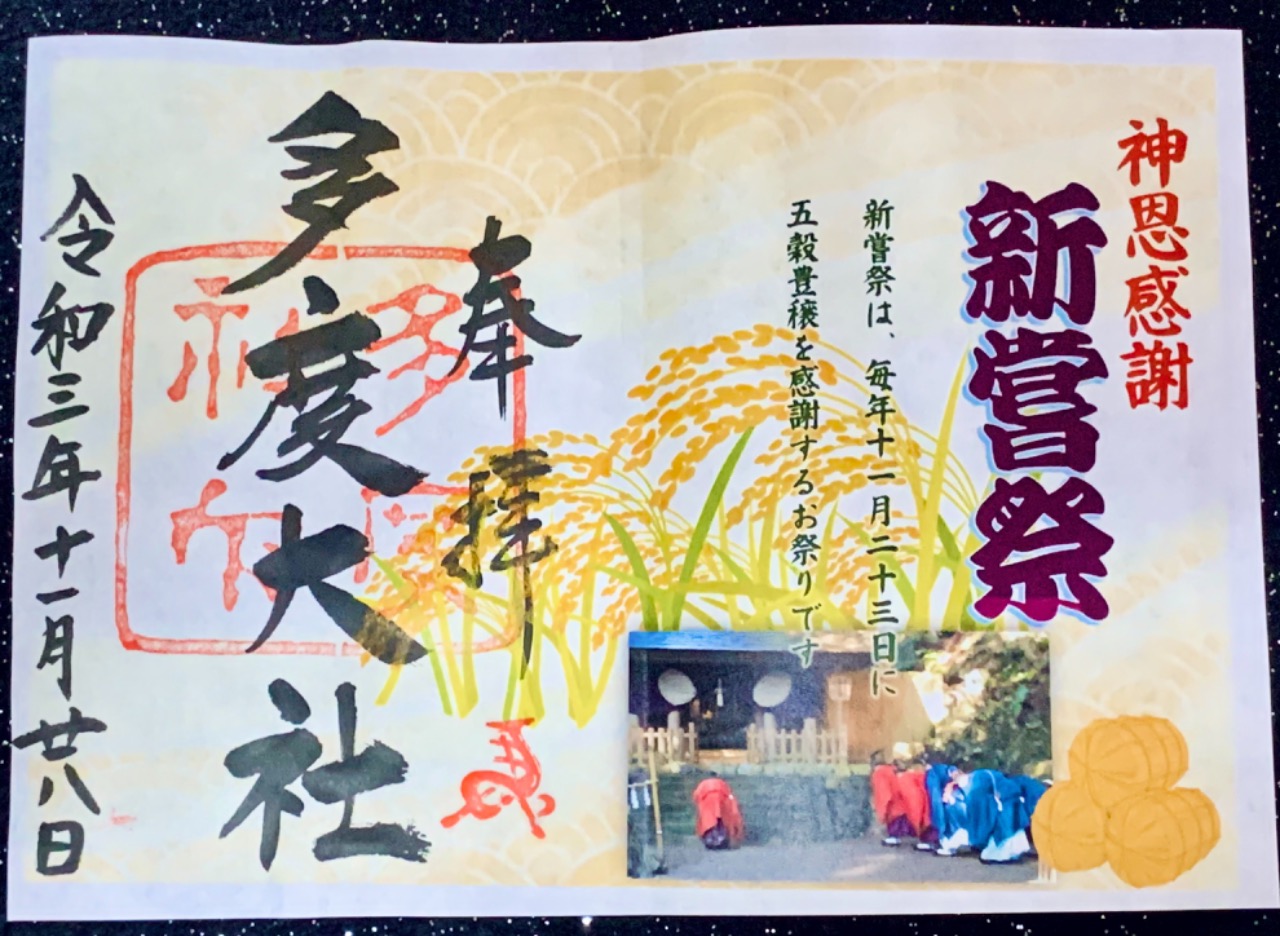 神恩感謝
新嘗祭
新嘗祭は、毎年十一月二十三日に
五穀豊穣を感謝するお祭りです
奉拝
多度大社
令和三年十一月廿八日